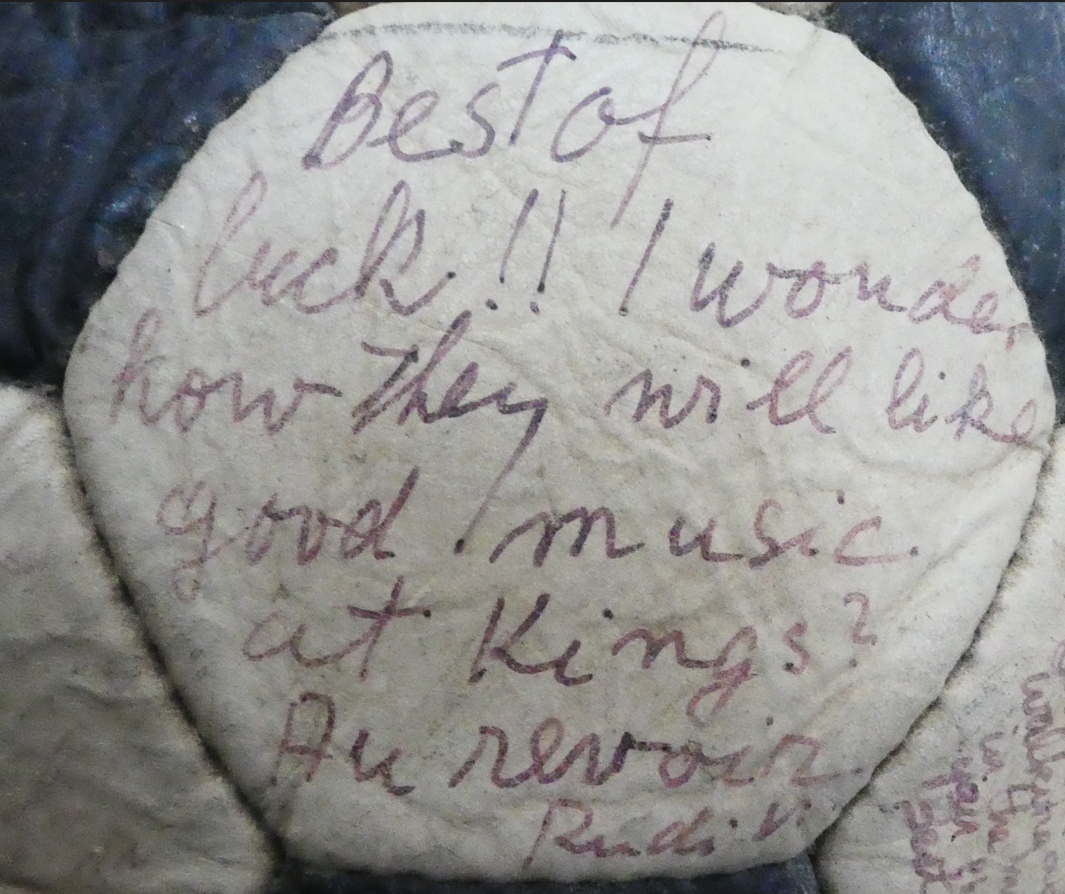 Best of
luck!! I wonder
how they will like
good music
at Kings?
Au revoir
Rudi V.
walking
in the